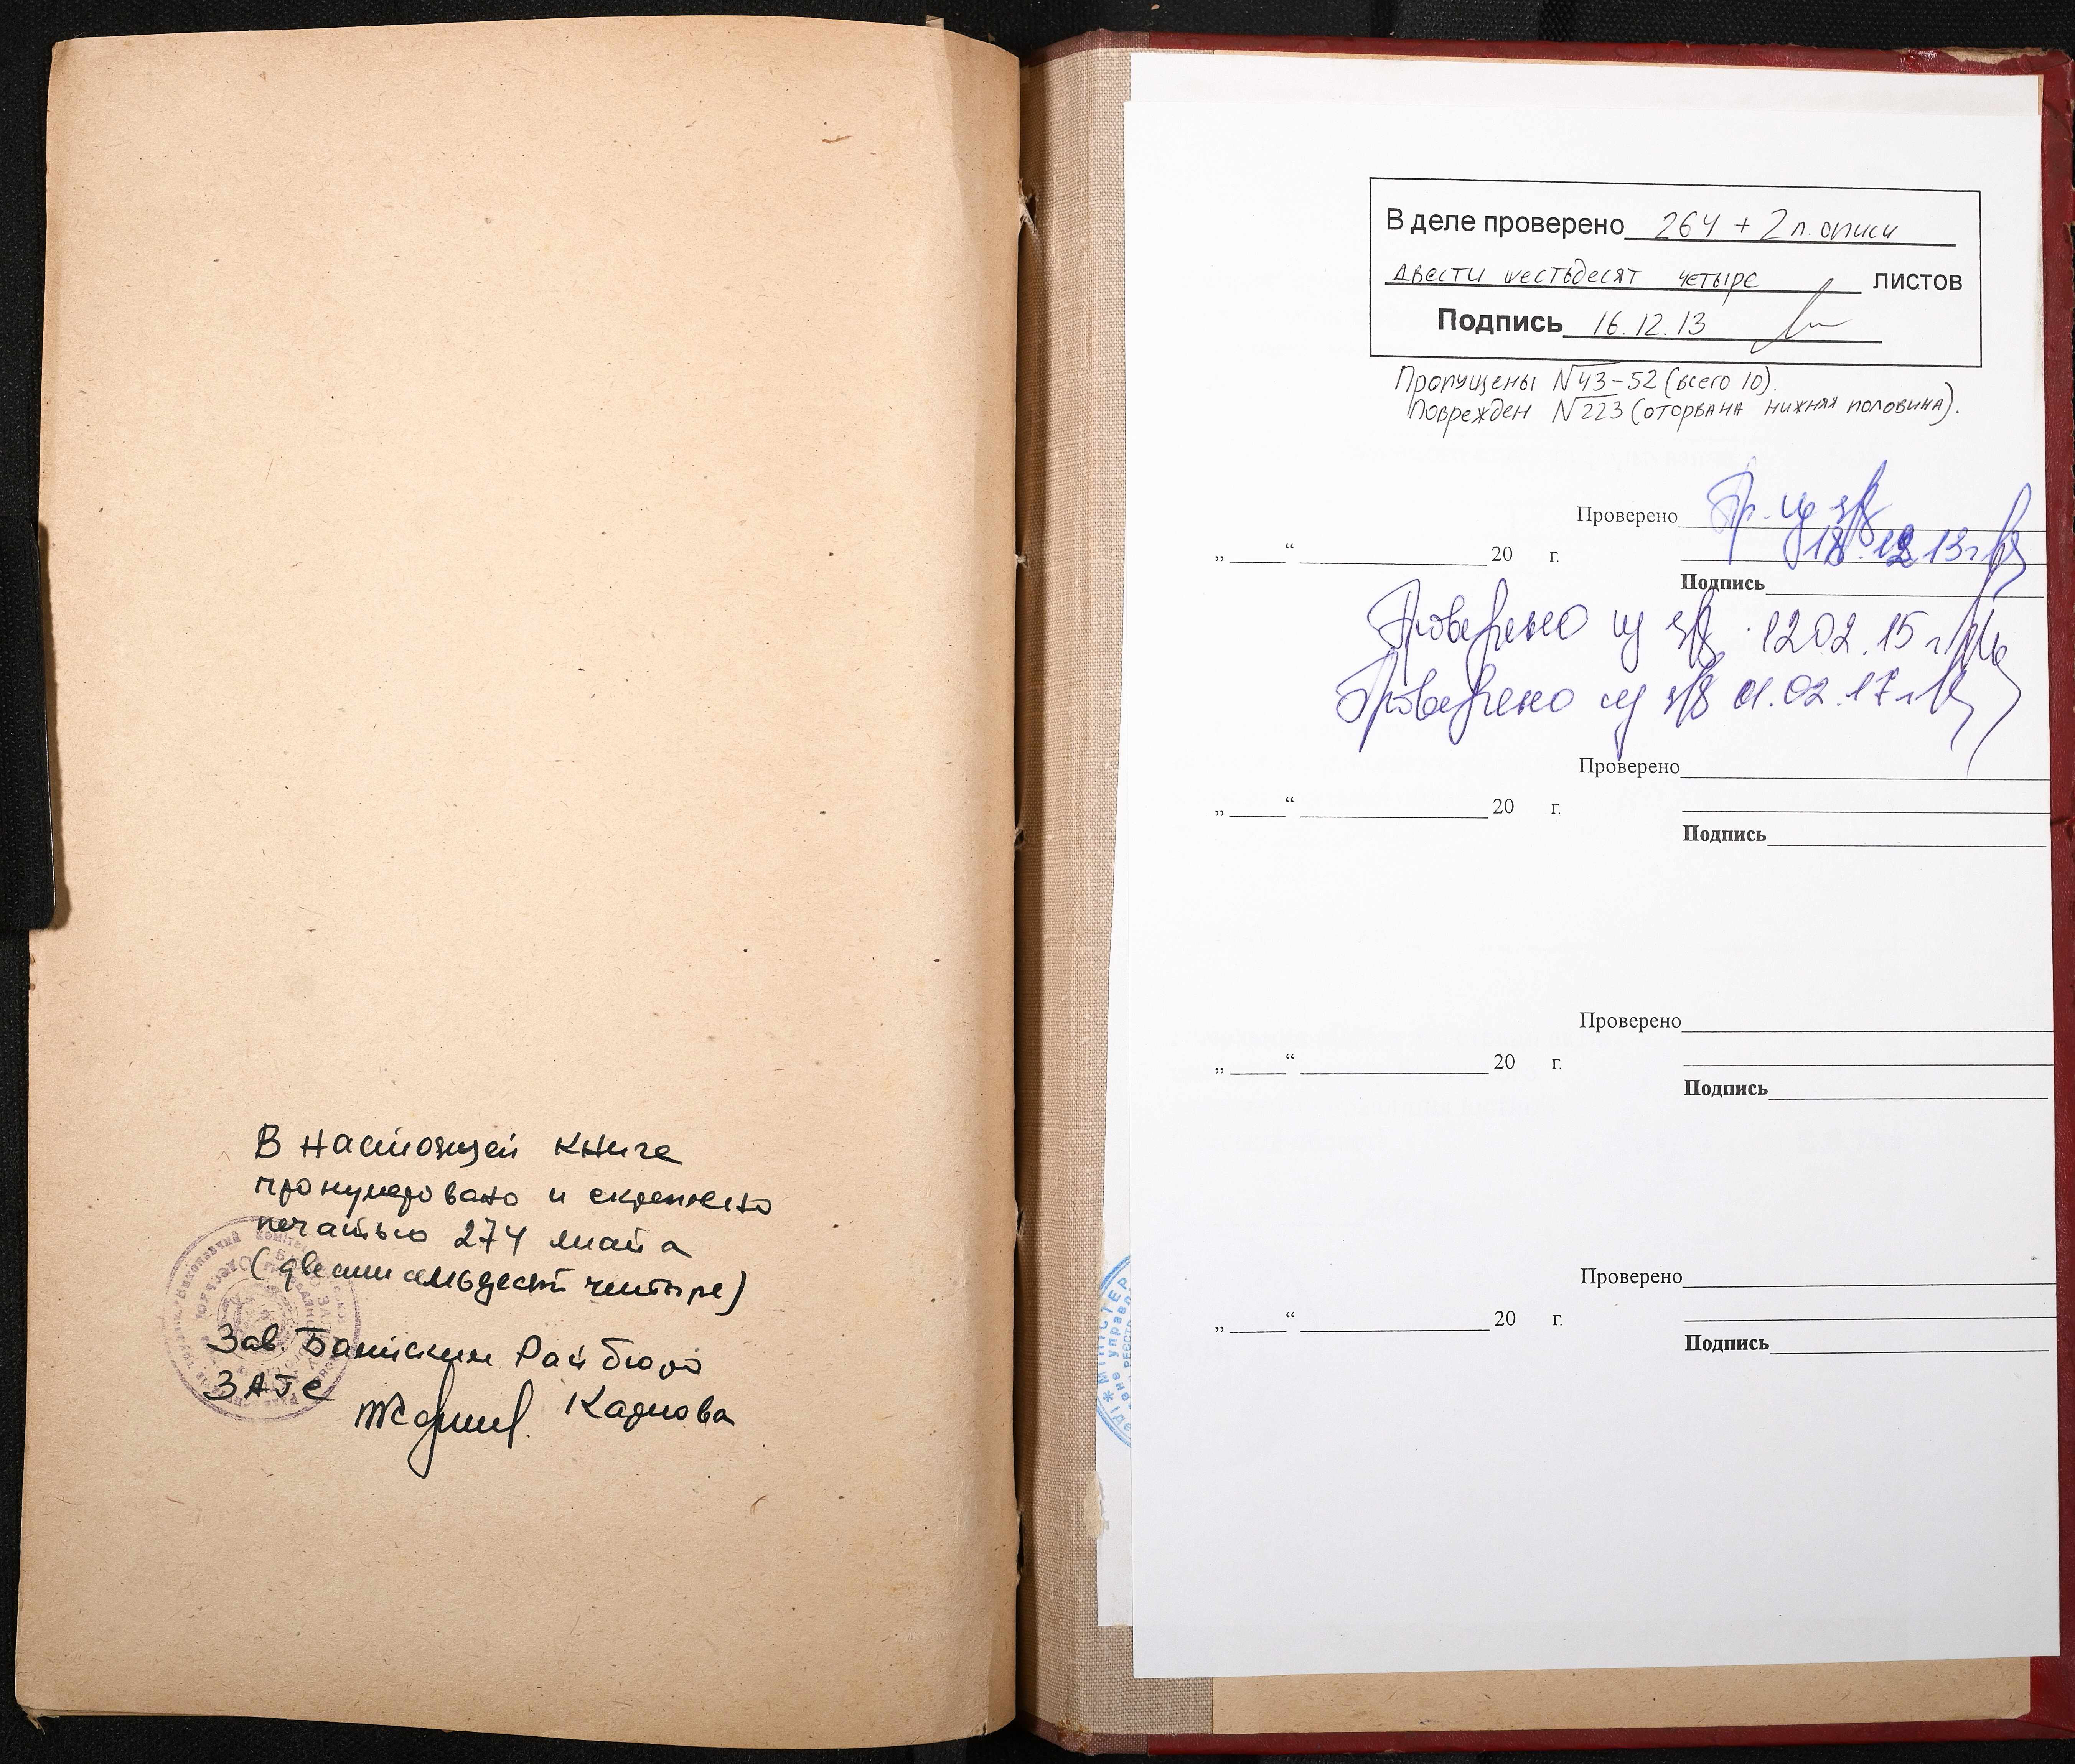 В настоящей книге
пронумеровано и скреплено
печатью 274 листа
(двести семьдесят четыре)
Зав. Рай бюро
ЗАГС
В деле проверено 264 + 2 л. описи
двести шестьдесят четыре листов
Подпись 16.12.13
Пропущены №43-52 (всего 10).
Поврежден №223 (оторвана нижняя половина).
Проверено
„ “ 20 г. 18.12.13г
Подпись
Проверено 12.02.15 г
Проверено 01.02.17 г
Проверено
„ “ 20 г.
Подпись
Проверено
„ “ 20 г.
Подпись
Проверено
„ “ 20 г.
Подпись